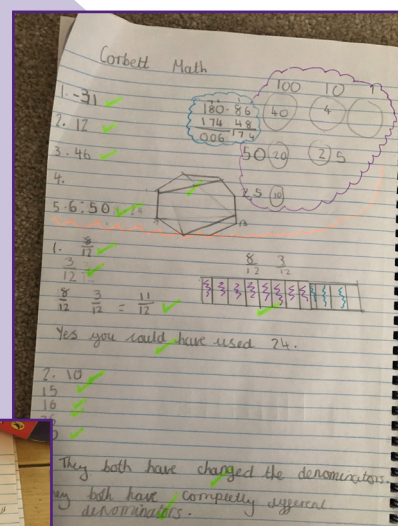 Corbett Math
100 10 1
1. -31
180.86
40 4
2. 12
174 48
006
3. 46
50 20 2 5
4.
25 10
5. 6:50
1. 8/12
3/12
8/12 3/12
8/12 3/12 = 11/12
Yes you could have used 24.
2. 10
15
16
They both have changed the denominators.
both have completly different
denominators.